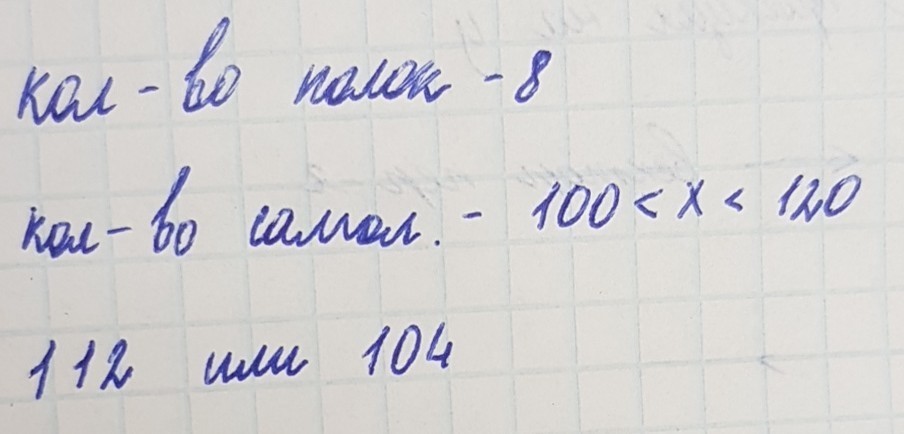 кол-во полок - 8
кол-во самол. - 100 < x < 120
112 или 104